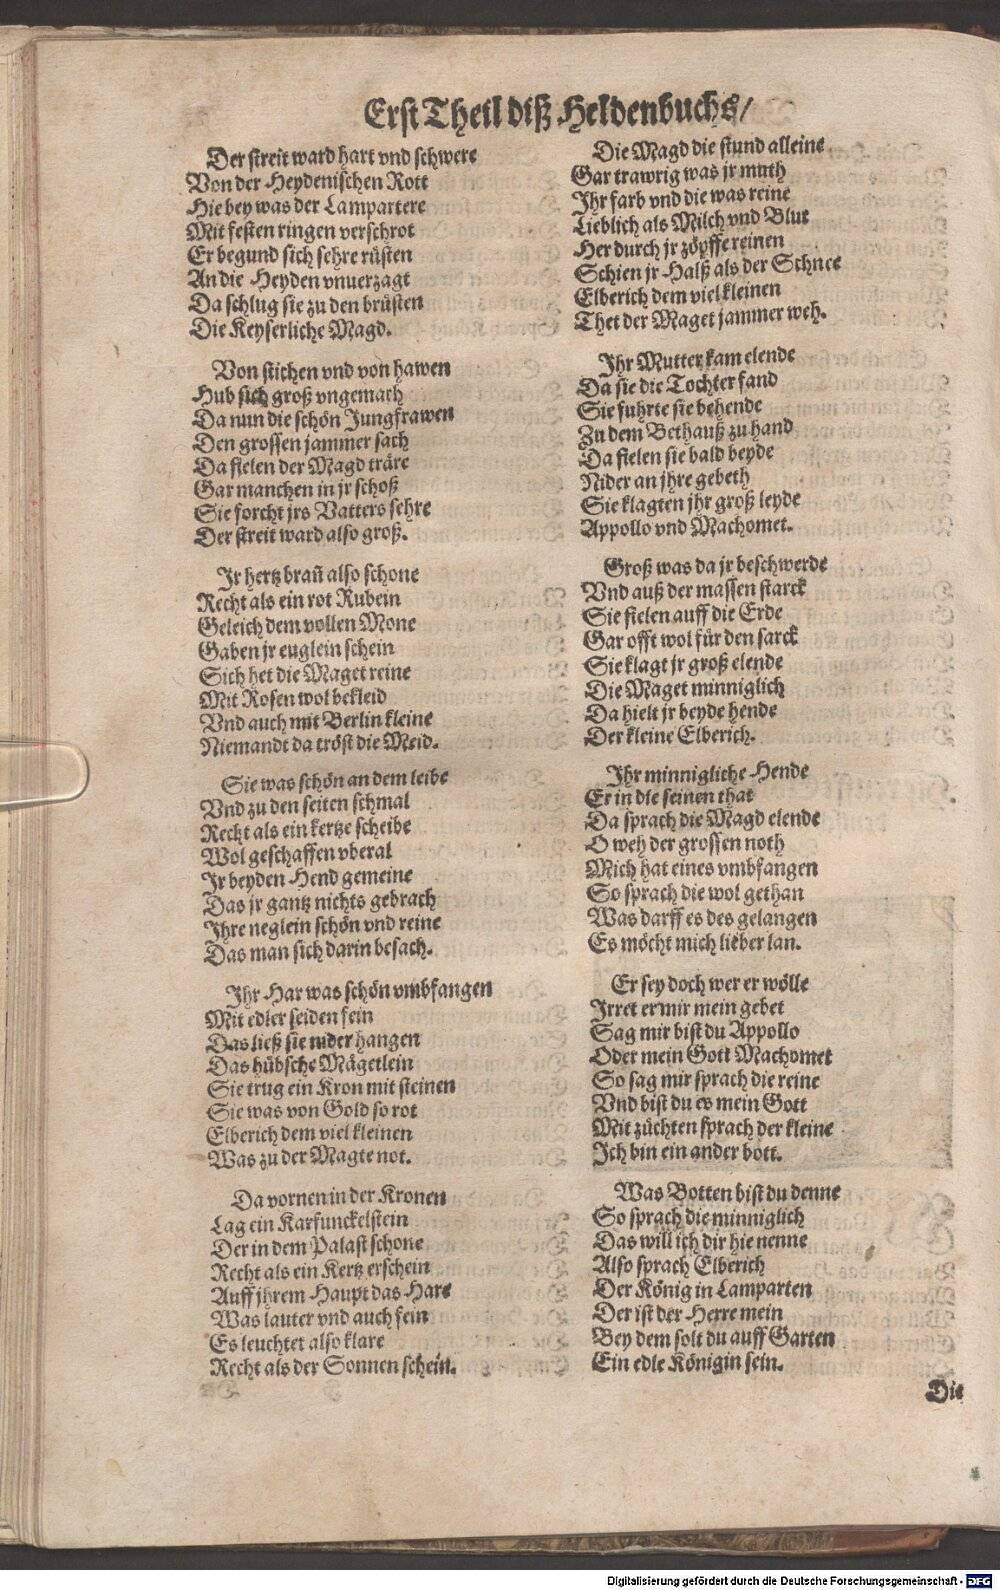 Erst Theil diß Heldenbuchs/
Der streit ward hart vnd schwere
Von der Heydenischen Rott
Hie bey was der Lampartere
Mit festen ringen verschrot
Er begund sich sehre rüsten
An die Heyden vnuerzagt
Da schlug sie zu den brüsten
Die Keyserliche Magd.
Von stichen vnd von hawen
Hub sich groß vngemach
Da nun die schön Jungfrawen
Den grossen jammer sach
Da fielen der Magd träre
Gar manchen in jr schoß
Sie forcht jrs Vatters sehre
Der streit ward also groß.
Jr hertz brañ also schone
Recht als ein rot Rubein
Geleich dem vollen Mone
Gaben jr euglein schein
Sich het die Maget reine
Mit Rosen wol bekleid
Vnd auch mit Berlin kleine
Niemandt da tröst die Meid.
Sie was schön an dem leibe
Vnd zu den seiten schmal
Recht als ein kertze scheibe
Wol geschaffen vberal
Jr beyden Hend gemeine
Das jr gantz nichts gebrach
Jhre neglein schön vnd reine
Das man sich darin besach.
Jhr Har was schön vmbfangen
Mit edler seiden fein
Das ließ sie nider hangen
Das hübsche Mägetlein
Sie trug ein Kron mit steinen
Sie was von Gold so rot
Elberich dem viel kleinen
Was zu der Magte not.
Da vornen in der Kronen
Lag ein Karfunckelstein
Der in dem Palast schone
Recht als ein Kertz erschein
Auff jhrem Haupt das Hare
Was lauter vnd auch fein
Es leuchtet also klare
Recht als der Sonnen schein.
Die Magd die stund alleine
Gar trawrig was jr muth
Jhr farb vnd die was reine
Lieblich als Milch vnd Blut
Her durch jr zöpffe reinen
Schien jr Halß als der Schnee
Elberich dem viel kleinen
Thet der Maget jammer weh.
Jhr Mutter kam elende
Da sie die Tochter fand
Sie fuhrte sie behende
Zu dem Bethauß zu hand
Da fielen sie bald beyde
Nider an jhre gebeth
Sie klagten jhr groß leyde
Appollo vnd Machomet.
Groß was da jr beschwerde
Vnd auß der massen starck
Sie fielen auff die Erde
Gar offt wol für den sarck
Sie klagt jr groß elende
Die Maget minniglich
Da hielt jr beyde hende
Der kleine Elberich.
Jhr minnigliche Hende
Er in die seinen that
Da sprach die Magd elende
O weh der grossen noth
Mich hat eines vmbfangen
So sprach die wol gethan
Was darff es des gelangen
Es möcht mich lieber lan.
Er sey doch wer er wölle
Jrret er mir mein gebet
Sag mir bist du Appollo
Oder mein Gott Machomet
So sag mir sprach die reine
Vnd bist du es mein Gott
Mit züchten sprach der kleine
Ich bin ein ander bott.
Was Botten bist du denne
So sprach die minniglich
Das will ich dir hie nenne
Also sprach Elberich
Der König in Lamparten
Der ist der Herre mein
Bey dem solt du auff Garten
Ein edle Königin sein.
Die
Digitalisierung gefördert durch die Deutsche Forschungsgemeinschaft - DFG